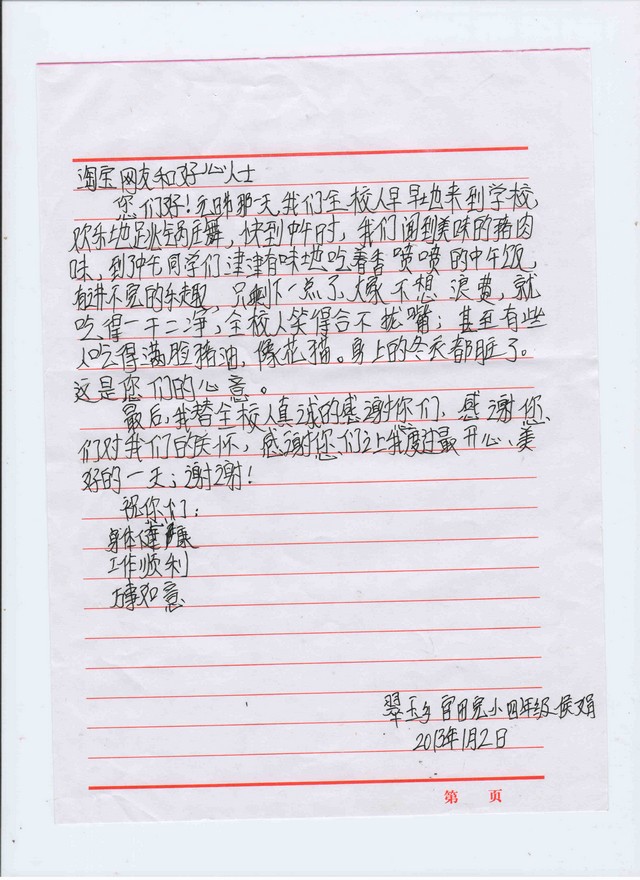 淘宝网友和好心人士
您们好!元旦那天,我们全校人早早地来到学校,
欢乐地跳锅庄舞,快到中午时,我们闻到美味的猪肉
味,到中午同学们津津有味地吃着香喷喷的中午饭,
有讲不完的乐趣,只剩下一点了,大家不想浪费,就
吃得一干二净,全校人笑得合不拢嘴;甚至有些
人吃得满脸猪油,像花猫。身上的冬天都脏了。
这是您们的心意。
最后,我替全校人真诚的感谢你们,感谢您
们对我们的关怀,感谢您们让我度过最开心、美
好的一天;谢谢!
祝你们:
身体健康
工作顺利
万事如意
翠玉乡官田完小四年级侯娟
2013年1月2日
第 页